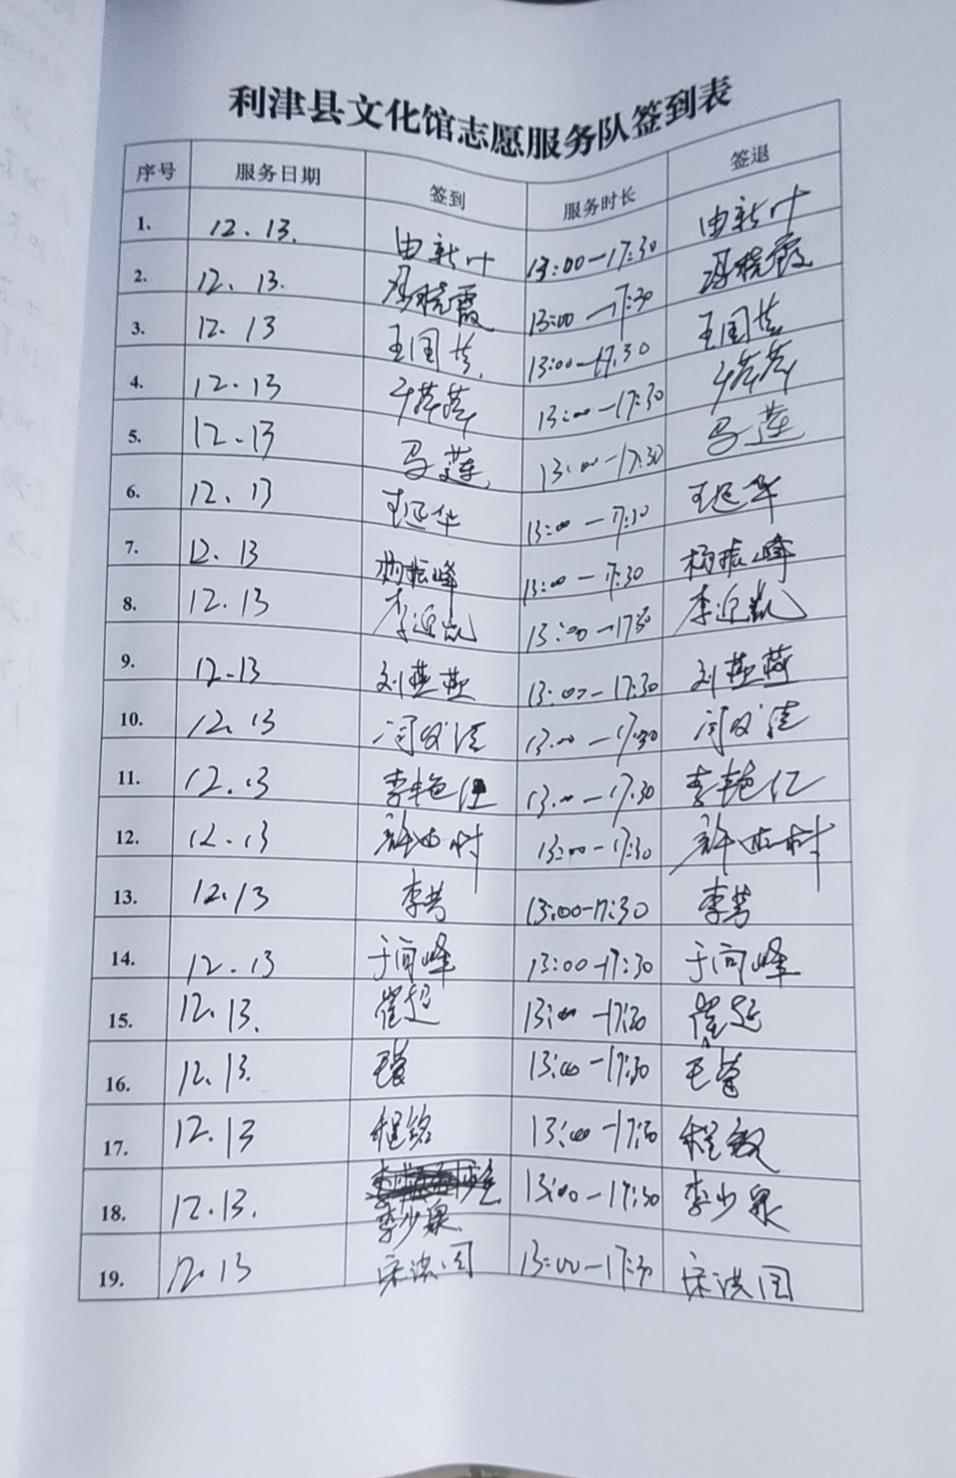 利津县文化馆志愿服务队签到表
序号 服务日期 签到 服务时长 签退
1. 12.13. 由新叶 13:00-17:30 由新叶
2. 12.13. 冯晓霞 13:00-17:30 冯晓霞
3. 12.13 王国芸 13:00-17:30 王国芸
4. 12.13 13:00-17:30
5. 12.13 马莲 13:00-17:30 马莲
6. 12.13 王廷华 13:00-17:30 王廷华
7. 12.13 杨振峰 13:00-17:30 杨振峰
8. 12.13 李迎凯 13:00-17:30 李迎凯
9. 12.13 刘燕燕 13:00-17:30 刘燕燕
10. 12.13 13:00-17:30
11. 12.13 李艳 13:00-17:30 李艳
12. 12.13 13:00-17:30
13. 12.13 李芳 13:00-17:30 李芳
14. 12.13 于向峰 13:00-17:30 于向峰
15. 12.13. 崔超 13:00-17:30 崔超
16. 12.13. 13:00-17:30
17. 12.13 程铭 13:00-17:30 程
18. 12.13. 李少泉 13:00-17:30 李少泉
19. 12.13 宋洪图 13:00-17:30 宋洪图